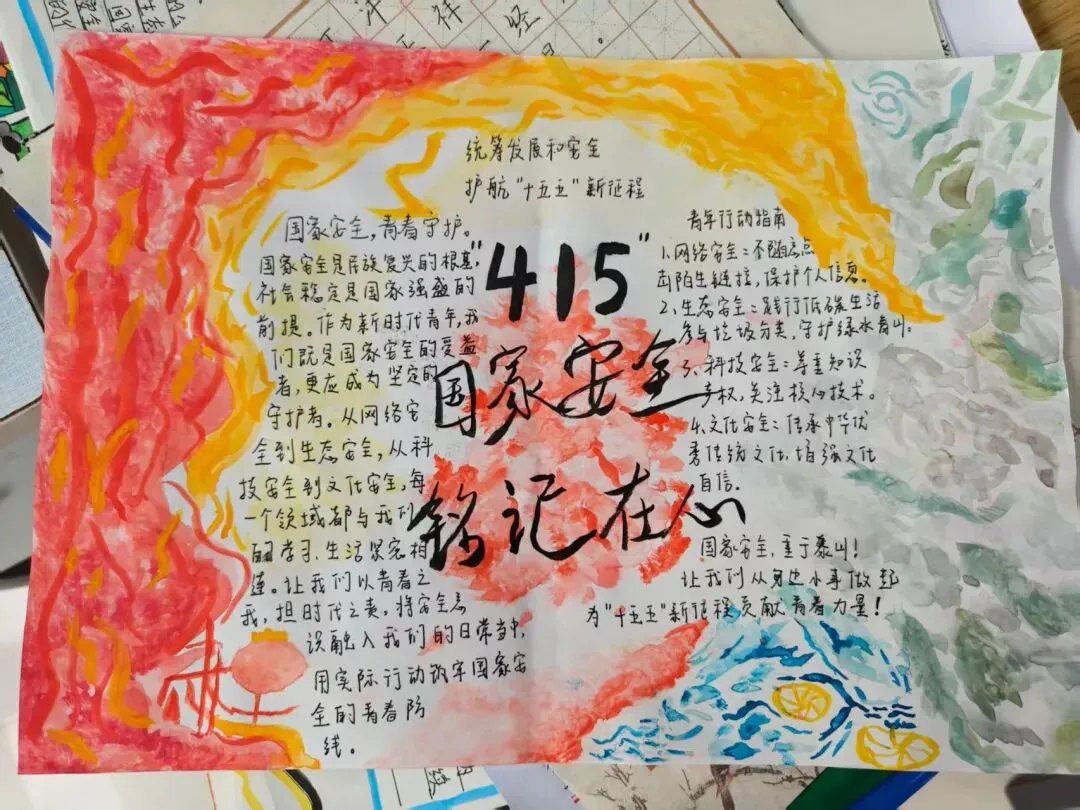 统筹发展和安全
护航"十五五"新征程
国家安全,青春守护。
国家安全是民族复兴的根基,
社会稳定是国家强盛的
前提。作为新时代青年,我
们既是国家安全的受益
者,更应成为坚定的
守护者。从网络安
全到生态安全,从科
技安全到文化安全,每
一个领域都与我们
的学习、生活紧密相
连。让我们以青春之
我,担时代之责,将安全意
识融入我们的日常当中,
用实际行动筑牢国家安
全的青春防
线。
"415"
国家安全
铭记在心
青年行动指南
1、网络安全:不随意点
击陌生链接,保护个人信息。
2、生态安全:践行低碳生活
参与垃圾分类,守护绿水青山。
3、科技安全:尊重知识
产权,关注核心技术。
4、文化安全:传承中华优
秀传统文化,增强文化
自信.
国家安全,重于泰山!
让我们从身边小事做起
为"十五五"新征程贡献青春力量!